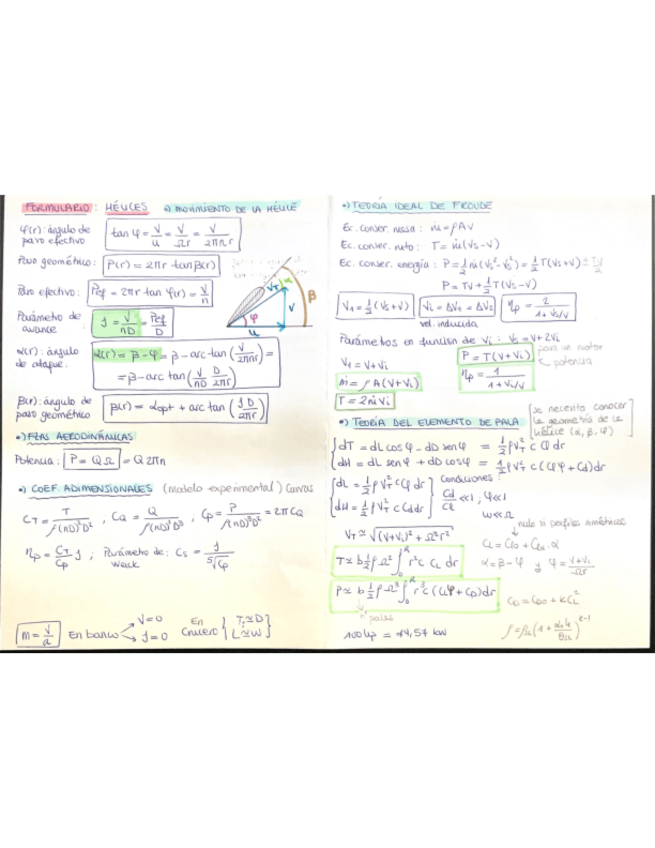 FORMULARIO: HÉLICES •) MOVIMIENTO DE LA HÉLICE
φ(r): ángulo de paso efectivo
tan φ = V/u = V/Ωr = V/2πnr
Paso geométrico: P(r) = 2πr tanβ(r)
Paso efectivo: Pef = 2πr tan φ(r) = V/n
Parámetro de avance
J = V/nD = Pef/D
α(r): ángulo de ataque.
α(r) = β - φ = β - arc tan(V/2πnr) =
= β - arc tan(V/nD D/2πr)
β(r): ángulo de paso geométrico
β(r) = αopt + arc tan(J D/2πr)
VT α V β φ u
•) FZAS AERODINÁMICAS
Potencia: P = QΩ = Q 2πn
•) COEF. ADIMENSIONALES (modelo experimental) Curvas
CT = T/ρ(nD)²D², CQ = Q/ρ(nD)²D³, Cp = P/ρ(nD)³D² = 2πCQ
ηp = CT/Cp J; Parámetro de: Cs = J/⁵√Cp
Weick
m = V/a En banco V=0 J=0 En crucero { T≃D L≃W
•) TEORÍA IDEAL DE FROUDE
Ec. conser. masa: ṁ = ρAV
Ec. conser. mto: T = ṁ(Vs - V)
Ec. conser. energía: P = 1/2 ṁ(Vs² - V²) = 1/2 T(Vs + V)
P = TV + 1/2 T(Vs - V)
V1 = 1/2(Vs + V) Vi = ΔV1 = ΔV2 ηp = 2/1+Vs/V
vel. inducida
Parámetros en función de Vi: Vs = V + 2Vi
para un motor
V1 = V + Vi P = T(V + Vi) potencia
ṁ = ρA(V + Vi) ηp = 1/1+Vi/V
T = 2ṁVi
•) TEORÍA DEL ELEMENTO DE PALA
[se necesita conocer la geometría de la hélice (α, β, φ)]
dT = dL cosφ - dD senφ = 1/2 ρVT² c Cl dr
dH = dL senφ + dD cosφ = 1/2 ρVT² c (Clφ + Cd)dr
dL = 1/2 ρVT² c Cl dr Condiciones:
dH = 1/2 ρVT² c Cd dr Cd/Cl <<1, φ<<1
w<<Ω
VT ≃ √(V+Vi)² + Ω²r²
nulo si perfiles simétricos
CL = CL0 + CLα α
T ≃ b 1/2 ρΩ² ∫₀ᴿ r² c CL dr
α = β - φ y φ = V+Vi/Ωr
P ≃ b 1/2 ρΩ³ ∫₀ᴿ r³ c (CLφ + CD)dr
CD = CD0 + KCL²
nº palas